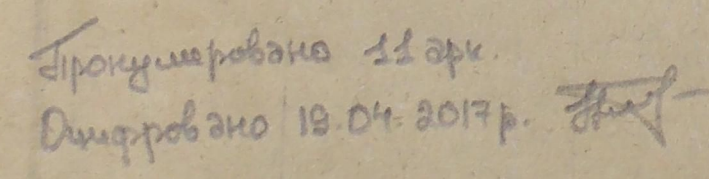 Пронумеровано 11 арк.
Оцифровано 19.04.2017р.